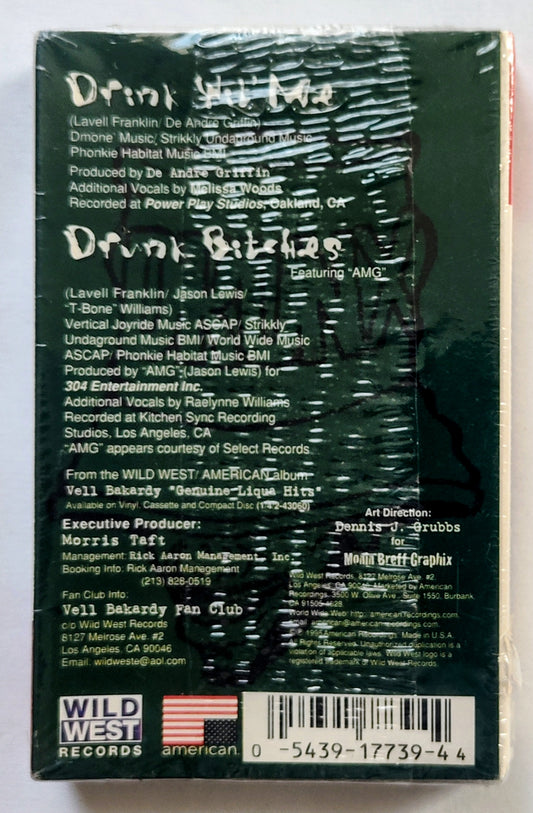 Drink Wit' Me
(Lavell Franklin/ De Andre Griffin)
Dmone' Music/ Strikkly Undaground Music
Phonkie Habitat Music BMI
Produced by De Andre Griffin
Additional Vocals by Melissa Woods
Recorded at Power Play Studios, Oakland, CA
Drunk Bitches
Featuring "AMG"
(Lavell Franklin/ Jason Lewis/
"T-Bone" Williams)
Vertical Joyride Music ASCAP/ Strikkly
Undaground Music BMI/ World Wide Music
ASCAP/ Phonkie Habitat Music BMI
Produced by "AMG" (Jason Lewis) for
304 Entertainment Inc.
Additional Vocals by Raelynne Williams
Recorded at Kitchen Sync Recording
Studios, Los Angeles, CA
"AMG" appears courtesy of Select Records
From the WILD WEST/ AMERICAN album
Vell Bakardy "Genuine Liqua Hits"
Available on Vinyl, Cassette and Compact Disc (1-4-2-43060)
Executive Producer:
Morris Taft
Management: Rick Aaron Management, Inc.
Booking Info: Rick Aaron Management
(213) 828-0519
Fan Club Info:
Vell Bakardy Fan Club
c/o Wild West Records
8127 Melrose Ave. #2
Los Angeles, CA 90046
Email: wildweste@aol.com
Art Direction:
Dennis J. Grubbs
for
Breff Graphix
Wild West Records, 8127 Melrose Ave. #2
Los Angeles, CA 90046. Marketed by American
Recordings, 3500 W. Olive Ave., Suite 1550, Burbank,
CA 91505-4628.
World Wide Web: http: american.recordings.com
email: american@american.recordings.com
American Recordings. Made in U.S.A.
All Rights Reserved. Unauthorized duplication is a
violation of applicable laws. Wild West logo is a
registered trademark of Wild West Records.
WILD
WEST
RECORDS
american.
0 -5439-17739-4 4